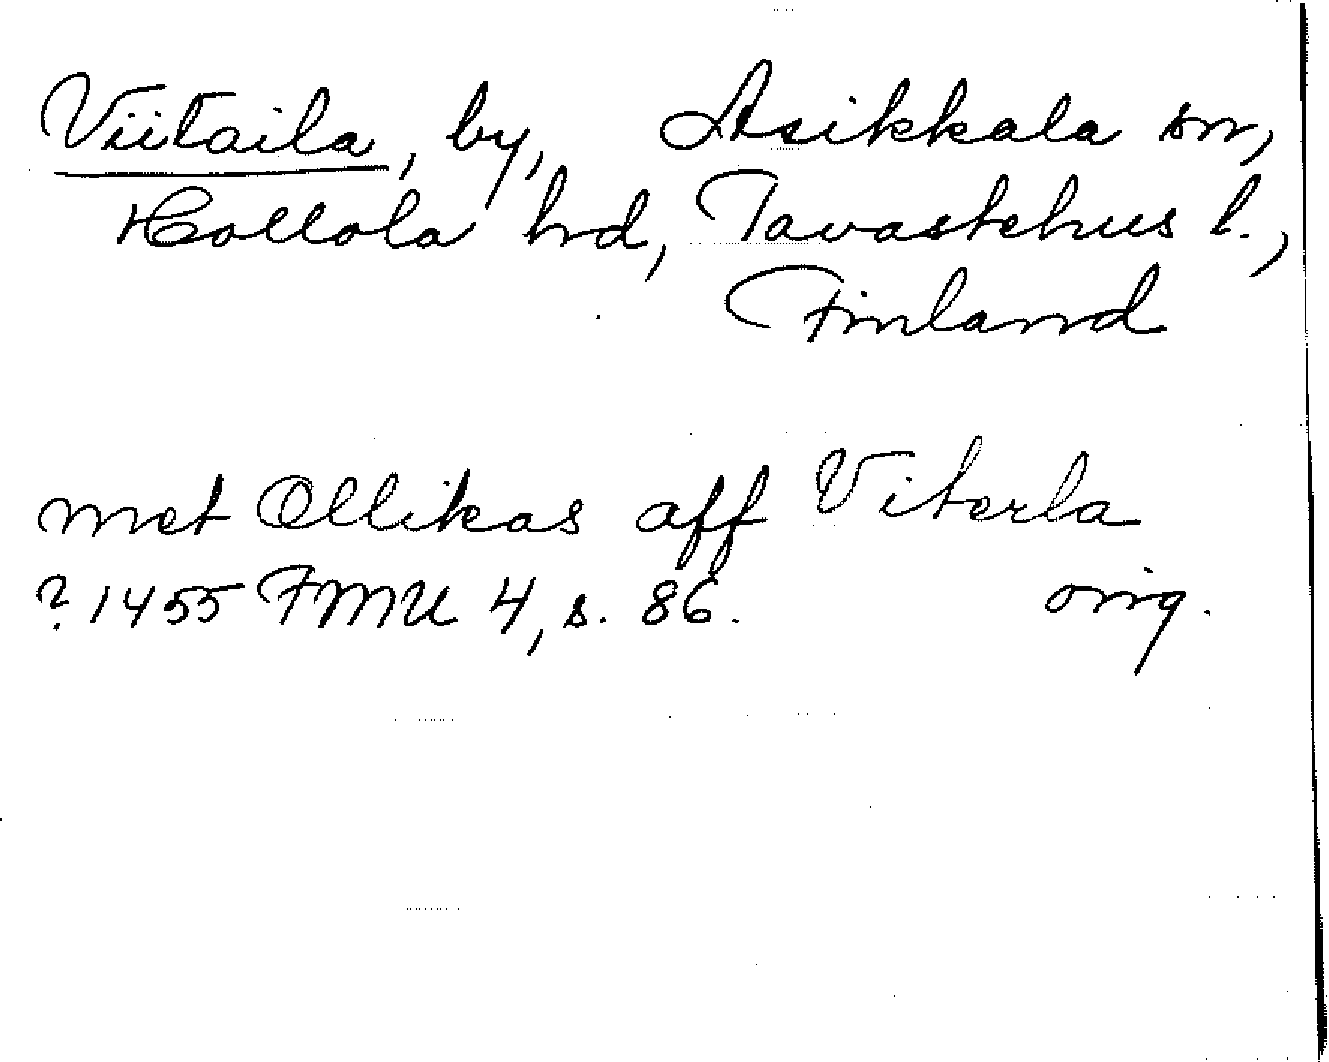 Viitaila, by, Asikkala sn,
Hollola hd, Tavastehus l.,
Finland
met Ollikas aff Viterla
? 1455 FMU 4, s. 86. orig.